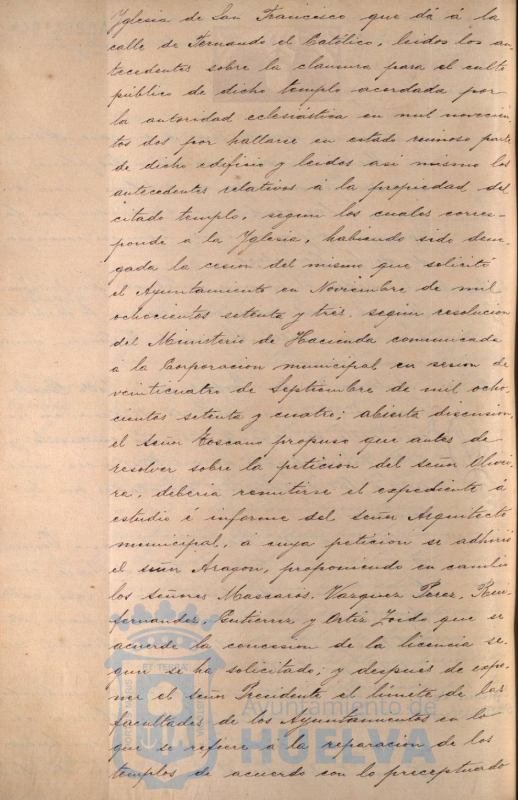 Yglesia de San Francisco que dá á la
calle de Fernando el Católico, leidos los an-
tecedentes sobre la clausura para el culto
público de dicho templo acordada por
la autoridad eclesiástica en mil novecien-
tos dos por hallarse en estado ruinoso parte
de dicho edificio y leidos asi mismo los
antecedentes relativos á la propiedad del
citado templo, segun los cuales corres-
ponde á la Yglesia, habiendo sido dene-
gada la cesion del mismo que solicitó
el Ayuntamiento en Noviembre de mil
ochocientos setenta y tres, segun resolucion
del Ministerio de Hacienda comunicada
á la Corporacion municipal en sesion de
veinticuatro de Septiembre de mil ocho-
cientos setenta y cuatro; abierta discusion,
el señor Toscano propuso que antes de
resolver sobre la peticion del señor Olivei-
ra, deberia remitirse el expediente á
estudio é informe del señor Arquitecto
municipal, á cuya peticion se adhirió
el señor Aragon, proponiendo en cambio
los señores Mascarós, Vazquez Perez, Rui-
fernandez, Gutierrez y Ortiz Zoido que se
acuerde la concesion de la licencia se-
gun se ha solicitado; y después de expo-
ner el señor Presidente el límite de las
facultades de los Ayuntamientos en lo
que se refiere á la reparacion de los
templos de acuerdo con lo preceptuado
ET TERRA
Ayuntamiento de
HUELVA